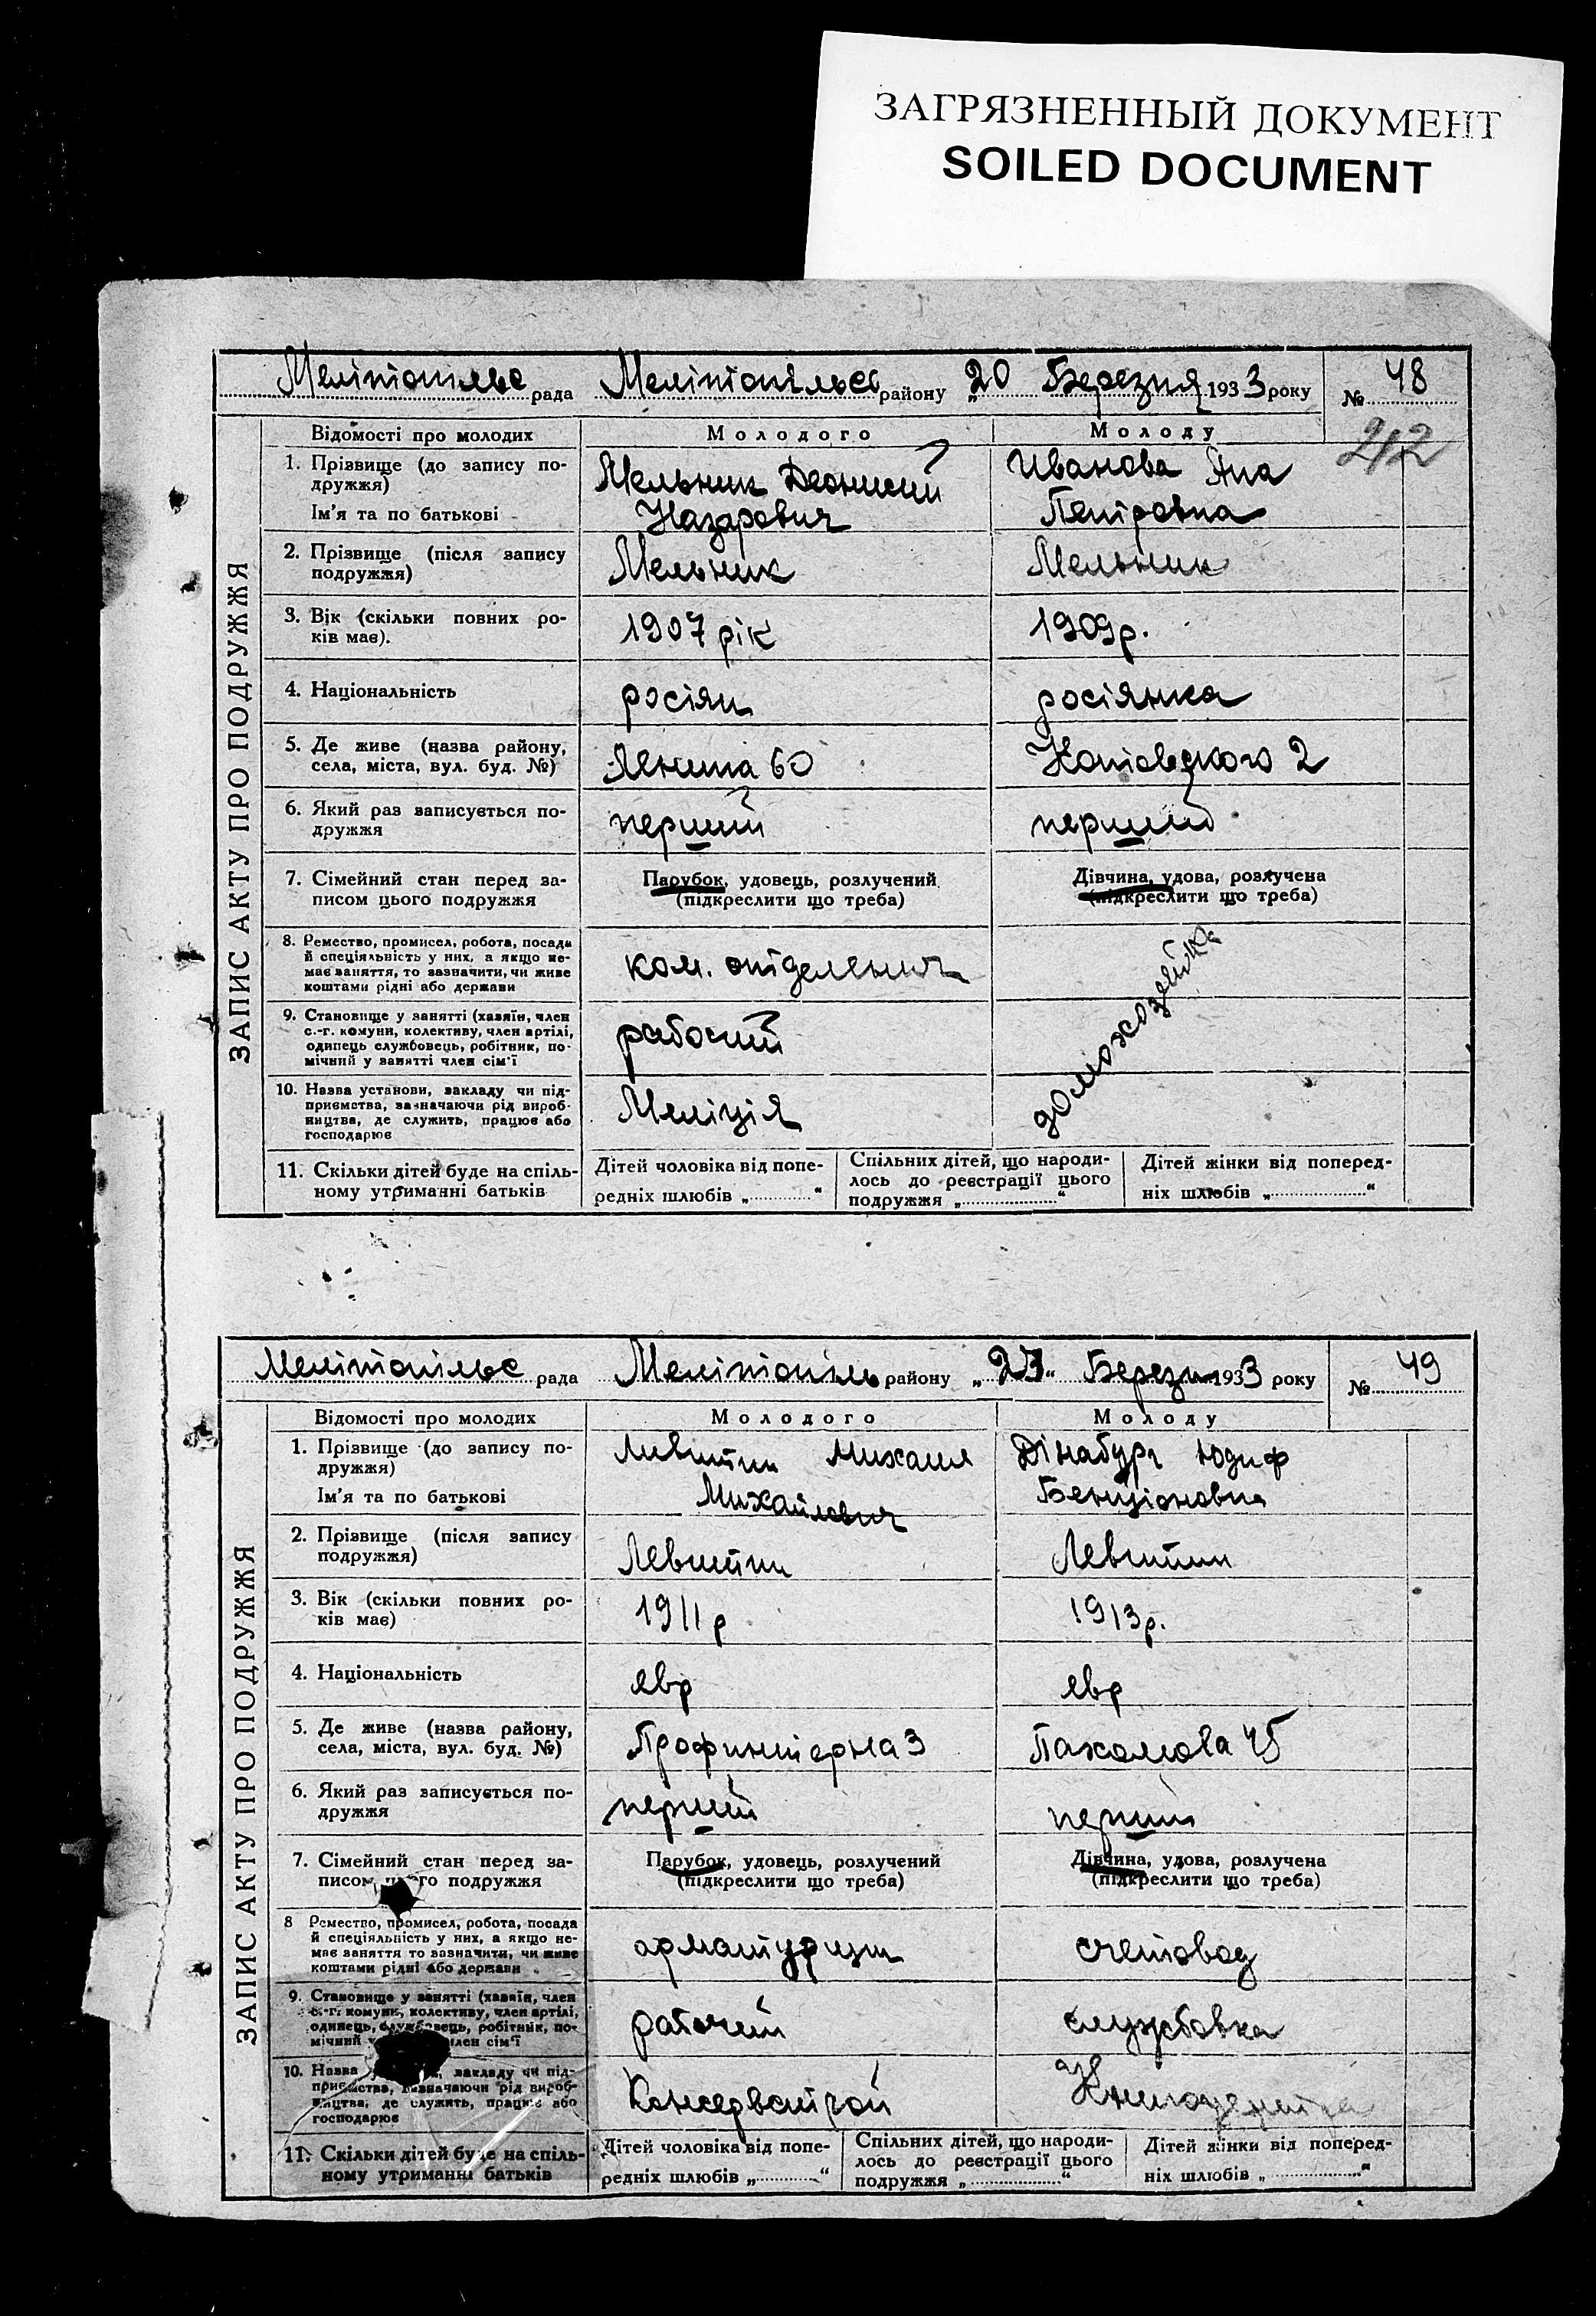 ЗАГРЯЗНЕННЫЙ ДОКУМЕНТ
SOILED DOCUMENT
Мелітопільс рада Мелітопільсь району „20 Березня 1933 року № 48
212
ЗАПИС АКТУ ПРО ПОДРУЖЖЯ
Відомості про молодих Молодого Молоду
1. Прізвище (до запису по-
дружжя)
Ім'я та по батькові
Мельник Деонисий
Назарович
Иванова Яна
Петровна
2. Прізвище (після запису
подружжя)
Мельник Мельник
3. Вік (скільки повних ро-
ків має).
1907 рік 1909 р.
4. Національність росіян росіянка
5. Де живе (назва району,
села, міста, вул. буд. №)
Леніна 60 Котовского 2
6. Який раз записується по-
дружжя
перший перший
7. Сімейний стан перед за-
писом цього подружжя
Парубок, удовець, розлучений
(підкреслити що треба)
Дівчина, удова, розлучена
(підкреслити що треба)
8. Ремество, промисел, робота, посада
й спеціяльність у них, а якщо не-
має заняття, то зазначити, чи живе
коштами рідні або держави
ком. отделенич
домохозейка
9. Становище у занятті (хазяїн, член
с.-г. комуни, колективу, член артілі,
одинець службовець, робітник, по-
мічний у занятті член сім'ї
рабочий
10. Назва установи, закладу чи під-
приємства, зазначаючи рід вироб-
ництва, де служить, працює або
господарює
Меліція
11. Скільки дітей буде на спіль-
ному утриманні батьків
Дітей чоловіка від попе-
редніх шлюбів „ “
Спільних дітей, що народи-
лось до реєстрації цього
подружжя „ “
Дітей жінки від поперед-
ніх шлюбів „ “
Мелітопільс рада Мелітопіль району „23“ Березн 1933 року № 49
ЗАПИС АКТУ ПРО ПОДРУЖЖЯ
Відомості про молодих Молодого Молоду
1. Прізвище (до запису по-
дружжя)
Ім'я та по батькові
Левитин Михаил
Михайлович
Дінабург Юдиф
Бенціоновна
2. Прізвище (після запису
подружжя)
Левитин Левитин
3. Вік (скільки повних ро-
ків має)
1911 р 1913 р.
4. Національність евр евр
5. Де живе (назва району,
села, міста, вул. буд. №)
Профинтерна 3 Пахомова 45
6. Який раз записується по-
дружжя
перший перший
7. Сімейний стан перед за-
писом го подружжя
Парубок, удовець, розлучений
(підкреслити що треба)
Дівчина, удова, розлучена
(підкреслити що треба)
8 Ремество, промисел, робота, посада
й спеціяльність у них, а якщо не-
має заняття то зазначити, чи живе
коштами рідні або держави
арматурщик счетовод
9. Становище у занятті (хазяїн, член
с.-г. комуни, колективу, член артілі,
одинець, службовець, робітник, по-
мічний член сім'ї
рабочий службовка
10. Назва закладу чи під-
приємства, зазначаючи рід вироб-
ництва, де служить, працює або
господарює
Консервстрой Книгоцентра
11. Скільки дітей буде на спіль-
ному утриманні батьків
Дітей чоловіка від попе-
редніх шлюбів „ “
Спільних дітей, що народи-
лось до реєстрації цього
подружжя „ “
Дітей жінки від поперед-
ніх шлюбів „ “